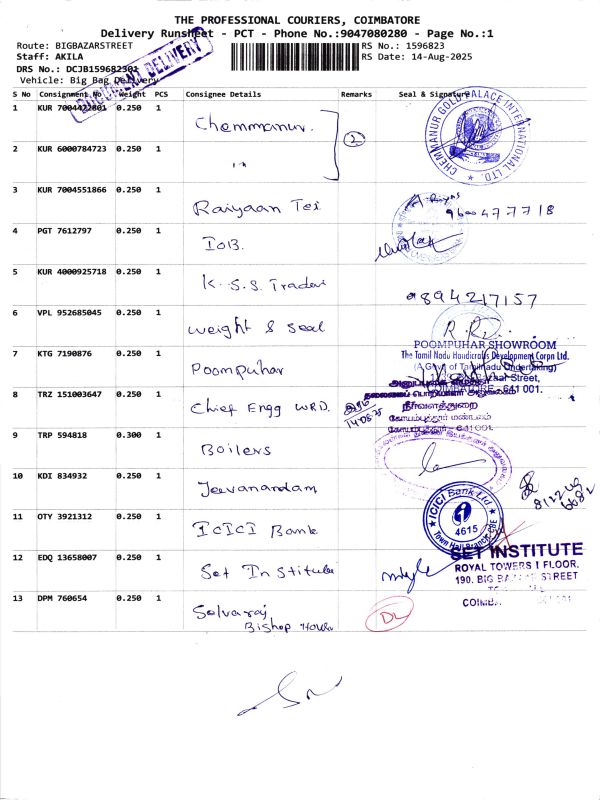 THE PROFESSIONAL COURIERS, COIMBATORE
Delivery Runsheet - PCT - Phone No.:9047080280 - Page No.:1
Route: BIGBAZARSTREET
RS No.: 1596823
Staff: AKILA
RS Date: 14-Aug-2025
DRS No.: DCJB159682301
Vehicle: Big Bag Delivery
DOCUMENT DELIVERY
S No Consignment No Weight PCS Consignee Details Remarks Seal & Signature
1 KUR 7004422801 0.250 1 Chemmanur. 2
CHEMMANUR GOLD PALACE INTERNATIONAL LTD.
2 KUR 6000784723 0.250 1 "
3 KUR 7004551866 0.250 1 Raiyaan Tex
9600477718
4 PGT 7612797 0.250 1 IOB.
5 KUR 4000925718 0.250 1 K.S.S. Traders
9894217157
6 VPL 952685045 0.250 1 weight & seal
7 KTG 7190876 0.250 1 Poompuhar
POOMPUHAR SHOWROOM
The Tamil Nadu Handicrafts Development Corpn Ltd.
(A Govt of Tamilnadu Undertaking)
Bazaar Street,
COIMBATORE - 641 001.
8 TRZ 151003647 0.250 1 Chief Engg WRD.
14-08-25
நீர்வளத்துறை
கோயம்புத்தூர் மண்டலம்
கோயம்புத்தூர் - 641 001.
9 TRP 594818 0.300 1 Boilers
10 KDI 834932 0.250 1 Jeevanandam
11 OTY 3921312 0.250 1 ICICI Bank
ICICI Bank Ltd
4615
Town Hall Branch, CBE
12 EDQ 13658007 0.250 1 Set Institute
SET INSTITUTE
ROYAL TOWERS I FLOOR,
190. BIG BAZAAR STREET
13 DPM 760654 0.250 1 Selvaraj
Bishop House
DL